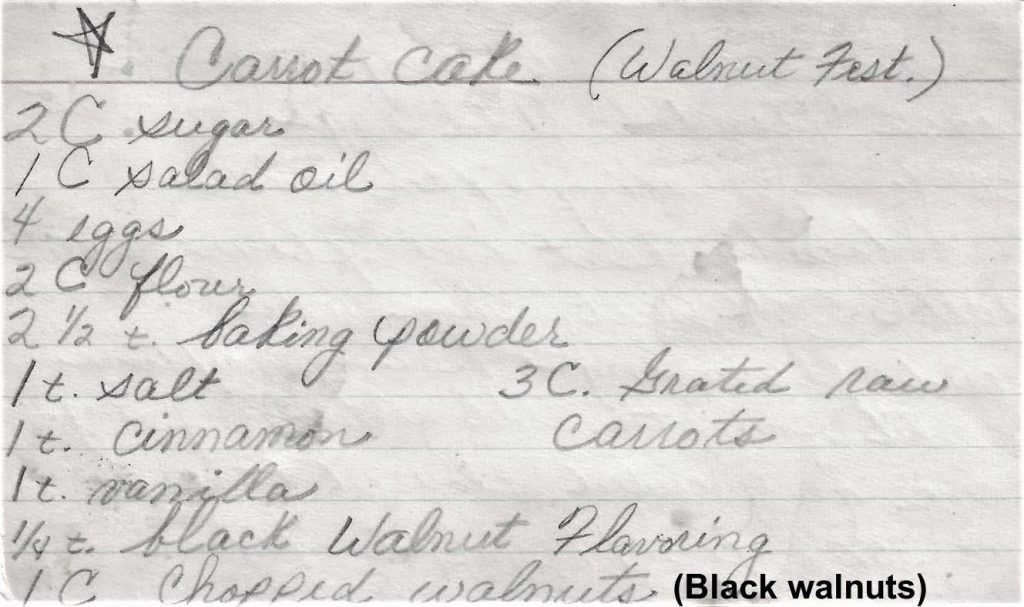 Carrot Cake (Walnut Fest.)
2 C sugar
1 C salad oil
4 eggs
2 C flour
2 1/2 t. baking powder
1 t. salt
3 C. Grated raw
1 t. cinnamon
carrots
1 t. vanilla
1/4 t. black Walnut Flavoring
1 C chopped walnuts (Black walnuts)